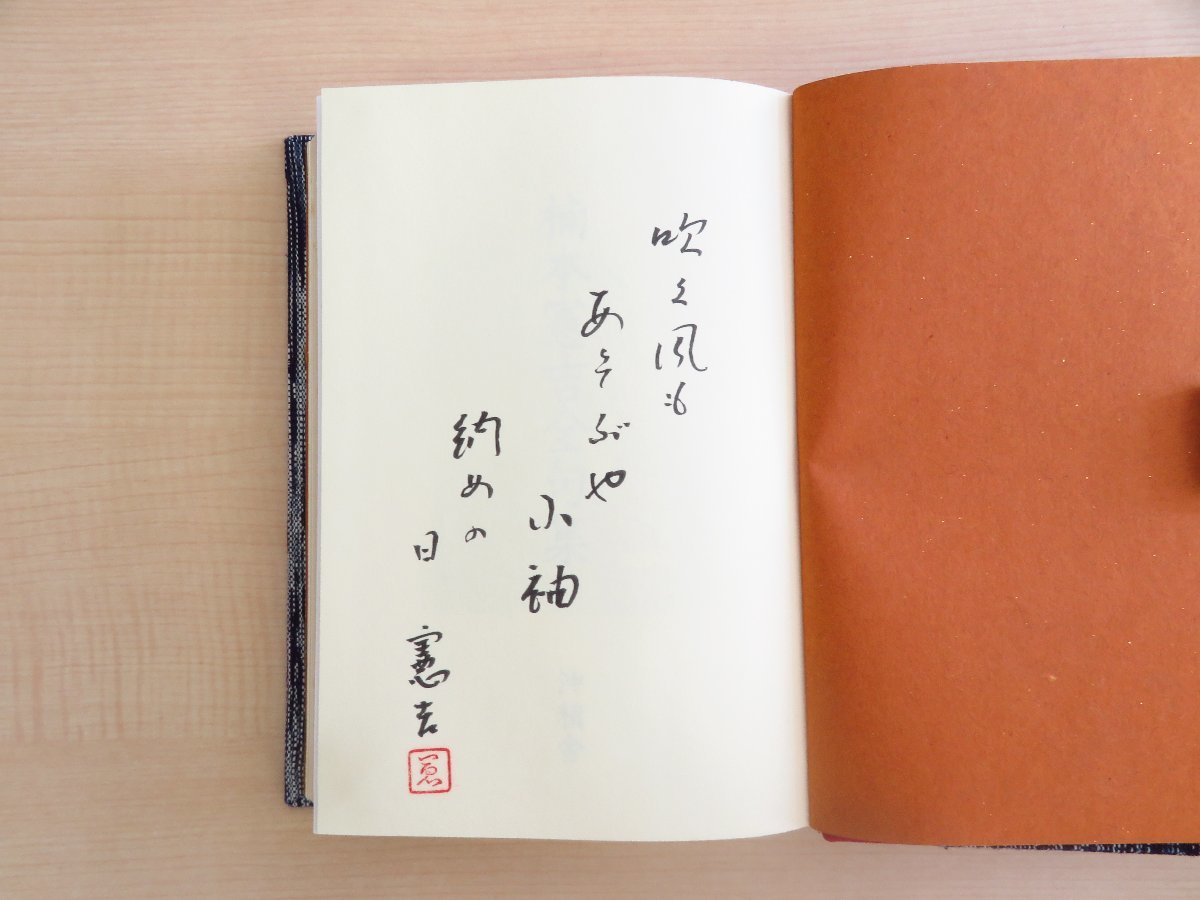 吹く風も
あそぶや
小袖
納めの
日
憲吉